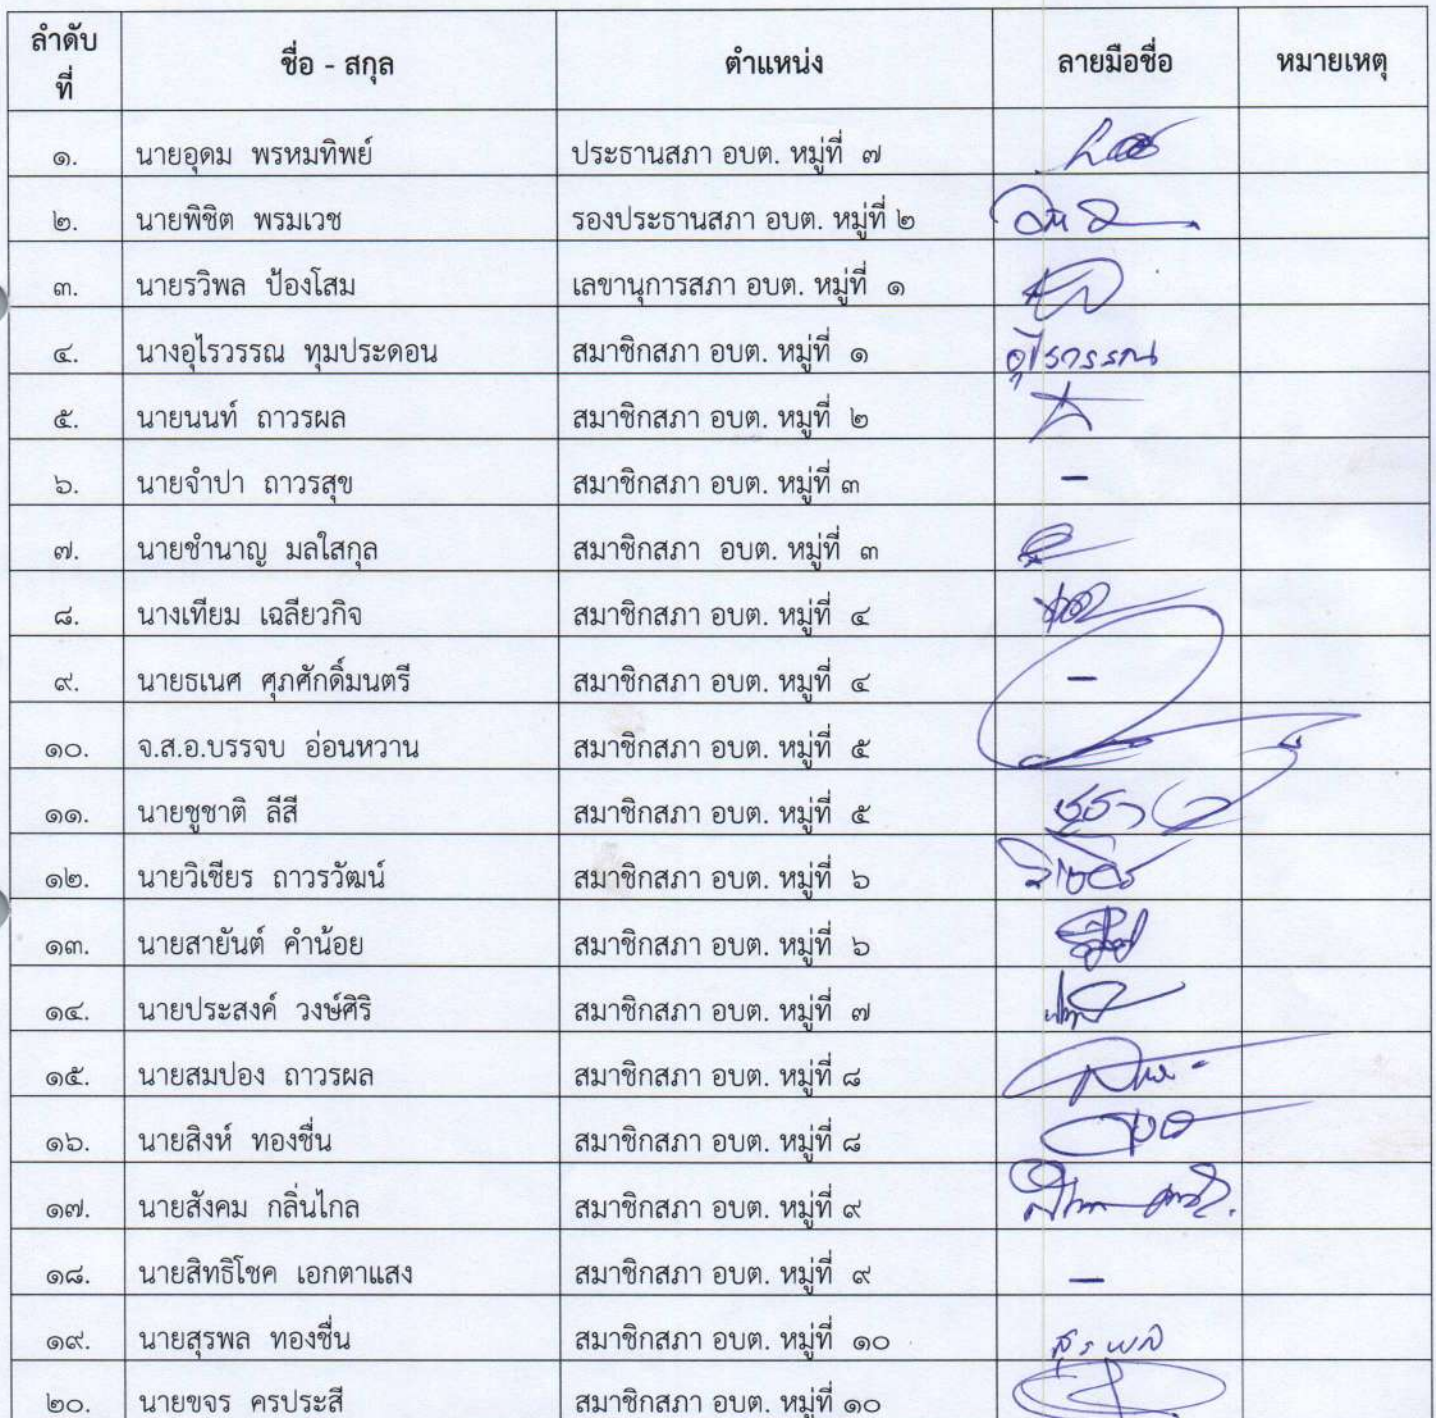 ลำดับที่ ชื่อ - สกุล ตำแหน่ง ลายมือชื่อ หมายเหตุ
๑. นายอุดม พรหมทิพย์ ประธานสภา อบต. หมู่ที่ ๗
๒. นายพิชิต พรมเวช รองประธานสภา อบต. หมู่ที่ ๒
๓. นายรวิพล ป้องโสม เลขานุการสภา อบต. หมู่ที่ ๑
๔. นางอุไรวรรณ ทุมประดอน สมาชิกสภา อบต. หมู่ที่ ๑ อุไรวรรณ
๕. นายนนท์ ถาวรผล สมาชิกสภา อบต. หมูที่ ๒
๖. นายจำปา ถาวรสุข สมาชิกสภา อบต. หมู่ที่ ๓ –
๗. นายชำนาญ มลใสกุล สมาชิกสภา อบต. หมู่ที่ ๓
๘. นางเทียม เฉลียวกิจ สมาชิกสภา อบต. หมู่ที่ ๔
๙. นายธเนศ ศุภศักดิ์มนตรี สมาชิกสภา อบต. หมูที่ ๔ –
๑๐. จ.ส.อ.บรรจบ อ่อนหวาน สมาชิกสภา อบต. หมู่ที่ ๕
๑๑. นายชูชาติ ลีสี สมาชิกสภา อบต. หมู่ที่ ๕
๑๒. นายวิเชียร ถาวรวัฒน์ สมาชิกสภา อบต. หมู่ที่ ๖
๑๓. นายสายันต์ คำน้อย สมาชิกสภา อบต. หมู่ที่ ๖
๑๔. นายประสงค์ วงษ์ศิริ สมาชิกสภา อบต. หมู่ที่ ๗
๑๕. นายสมปอง ถาวรผล สมาชิกสภา อบต. หมู่ที่ ๘
๑๖. นายสิงห์ ทองชื่น สมาชิกสภา อบต. หมู่ที่ ๘
๑๗. นายสังคม กลิ่นไกล สมาชิกสภา อบต. หมู่ที่ ๙
๑๘. นายสิทธิโชค เอกตาแสง สมาชิกสภา อบต. หมู่ที่ ๙ –
๑๙. นายสุรพล ทองชื่น สมาชิกสภา อบต. หมู่ที่ ๑๐ สุรพล
๒๐. นายขจร ครประสี สมาชิกสภา อบต. หมู่ที่ ๑๐